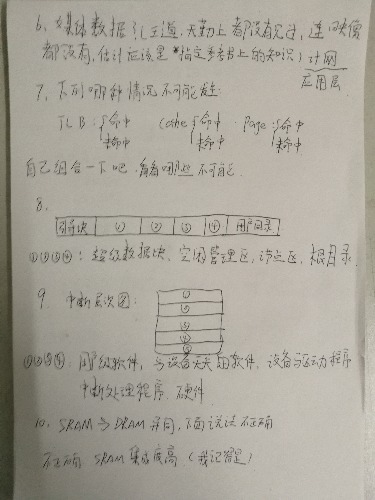 6、多媒体数据引 王道、天勤上都没有见过，连映像
都没有，估计应该是*指定参考书上的知识）计网
应用层
7、下列哪种情况不可能发生：
TLB：{命中 Cache{命中 Page：{命中
未命中 未命中 未命中
自己组合一下吧，看看哪些不可能
8.
引导块 ① ② ③ ④ 用户目录
①②③④：超级数据块、空闲管理区、i节点区、根目录
9、中断层次图：
①
②
③
④
⑤
①②③④：用户级软件，与设备无关的软件，设备与驱动程序
中断处理程序、硬件
10、SRAM与DRAM异同，下面说法不正确
不正确，SRAM集成度高（我记得是）